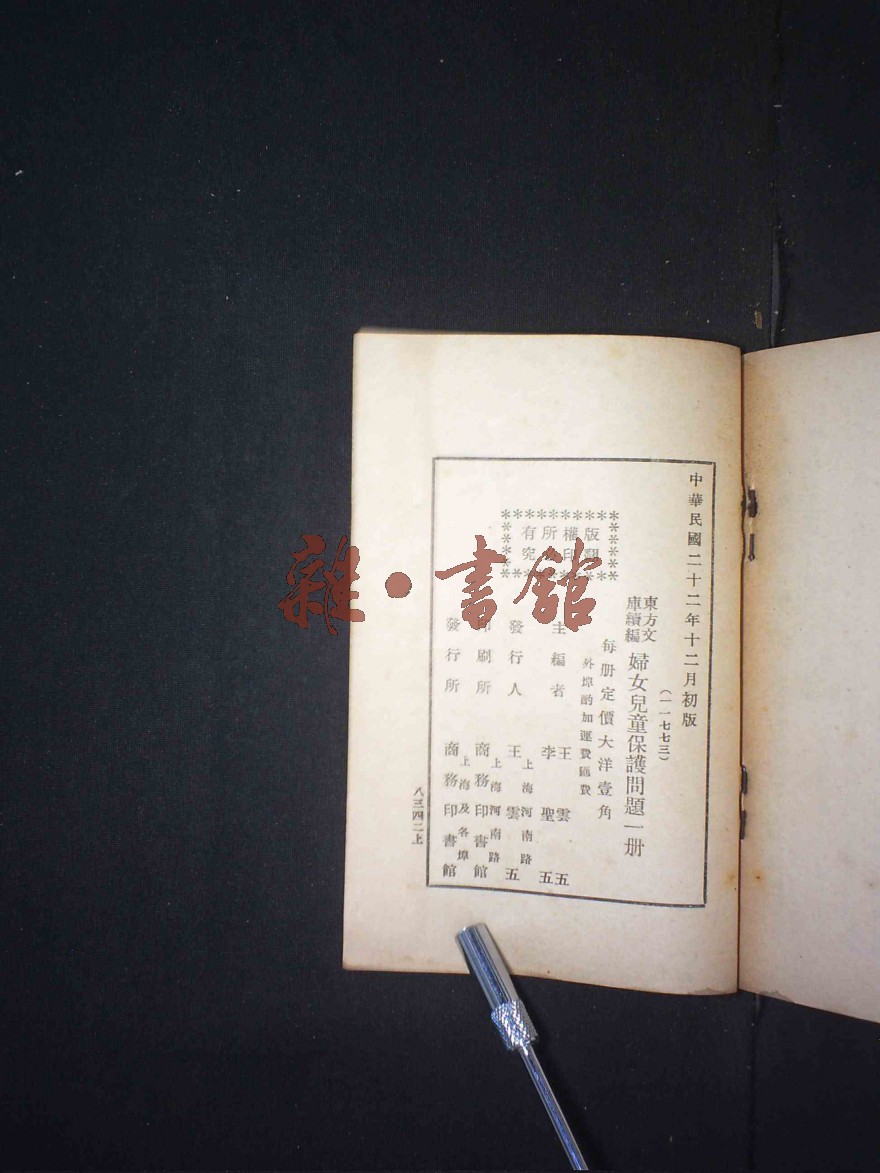 中華民國二十二年十二月初版
(一一七七三)
東方文庫續編 婦女兒童保護問題一册
每册定價大洋壹角
外埠酌加運費匯費
版權所有
翻印必究
主編者 王雲五 李聖五
發行人 上海河南路 王雲五
印刷所 上海河南路 商務印書館
發行所 上海及各埠 商務印書館
八三四二上
雜·書館